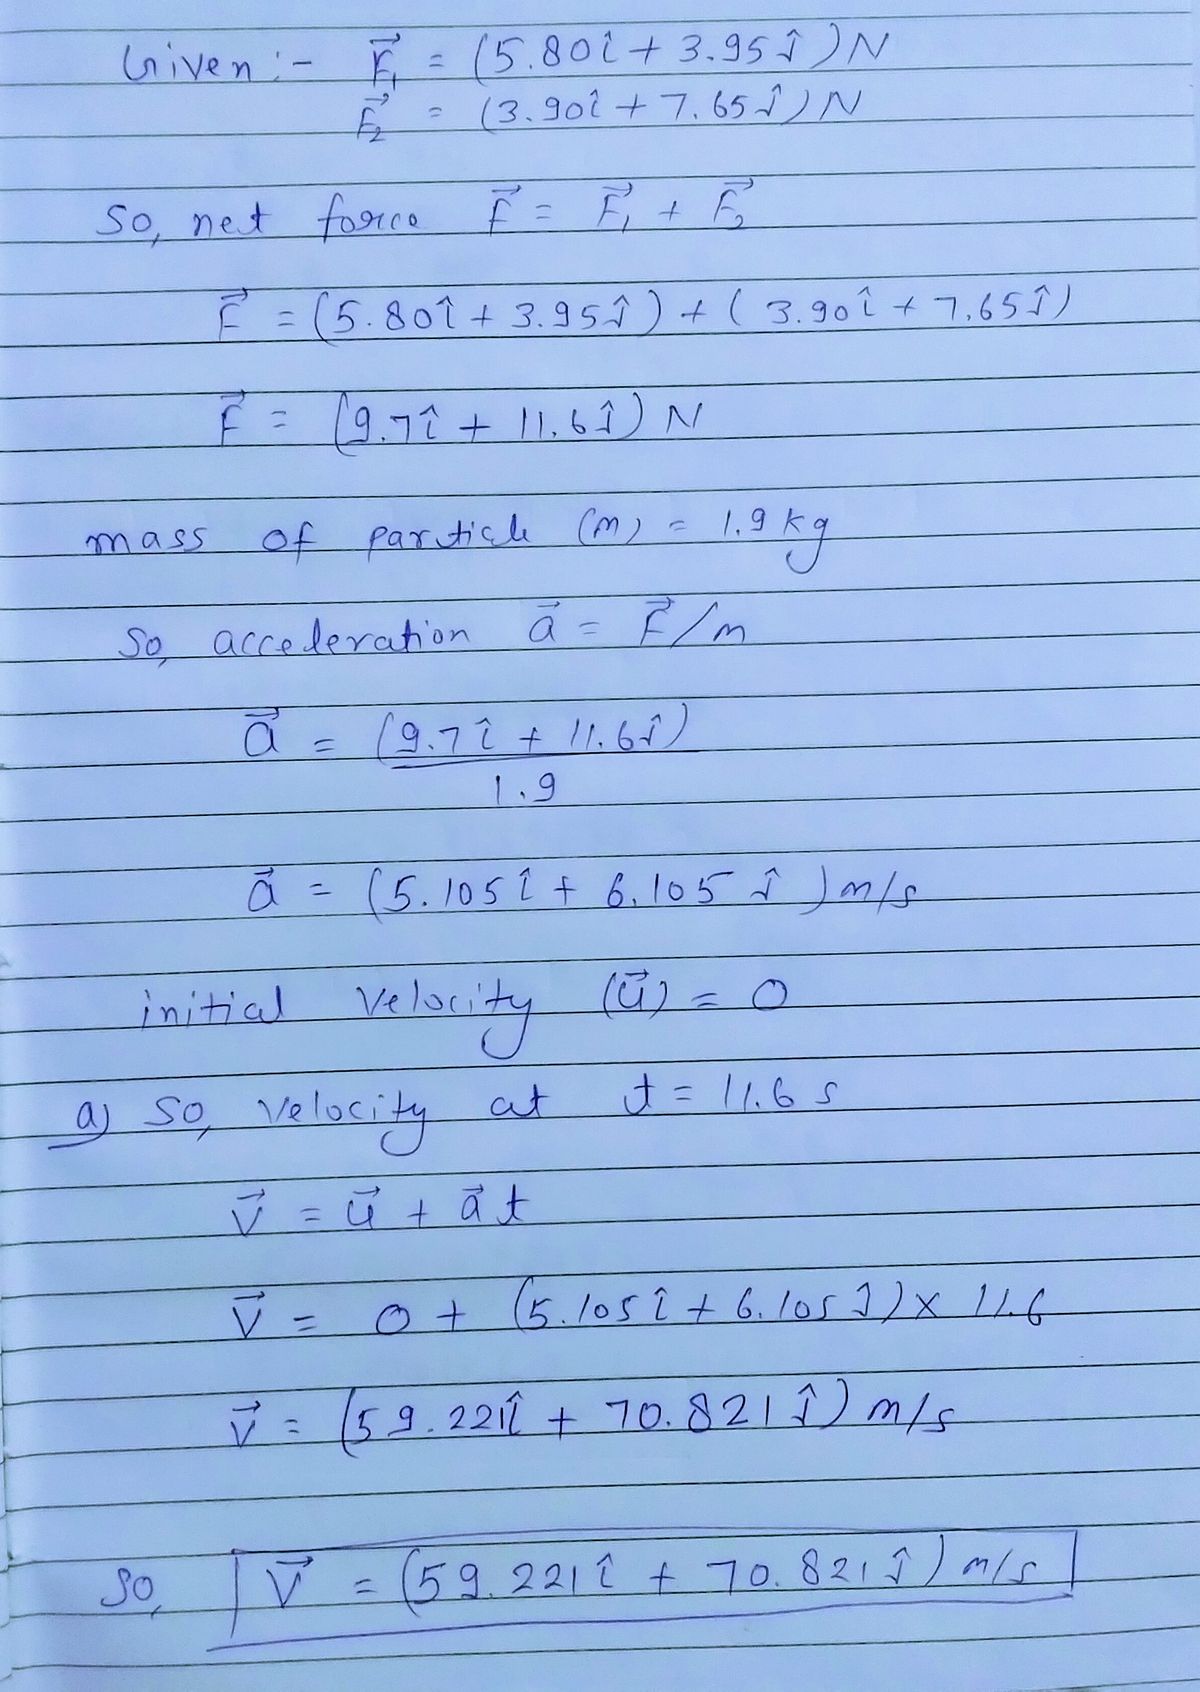 Given :- F⃗₁ = (5.80î + 3.95ĵ) N
F⃗₂ = (3.90î + 7.65ĵ) N
So, net force F⃗ = F⃗₁ + F⃗₂
F⃗ = (5.80î + 3.95ĵ) + ( 3.90î + 7.65ĵ)
F⃗ = (9.7î + 11.6ĵ) N
mass of particle (m) = 1.9 kg
So, acceleration a⃗ = F⃗/m
a⃗ = (9.7î + 11.6ĵ)
1.9
a⃗ = (5.105î + 6.105 ĵ ) m/s
initial velocity (u⃗) = 0
a) So, velocity at t = 11.6 s
V⃗ = u⃗ + a⃗ t
V⃗ = 0 + (5.105î + 6.105ĵ) × 11.6
V⃗ = (59.221î + 70.821ĵ) m/s
So, V⃗ = (59.221î + 70.821ĵ) m/s